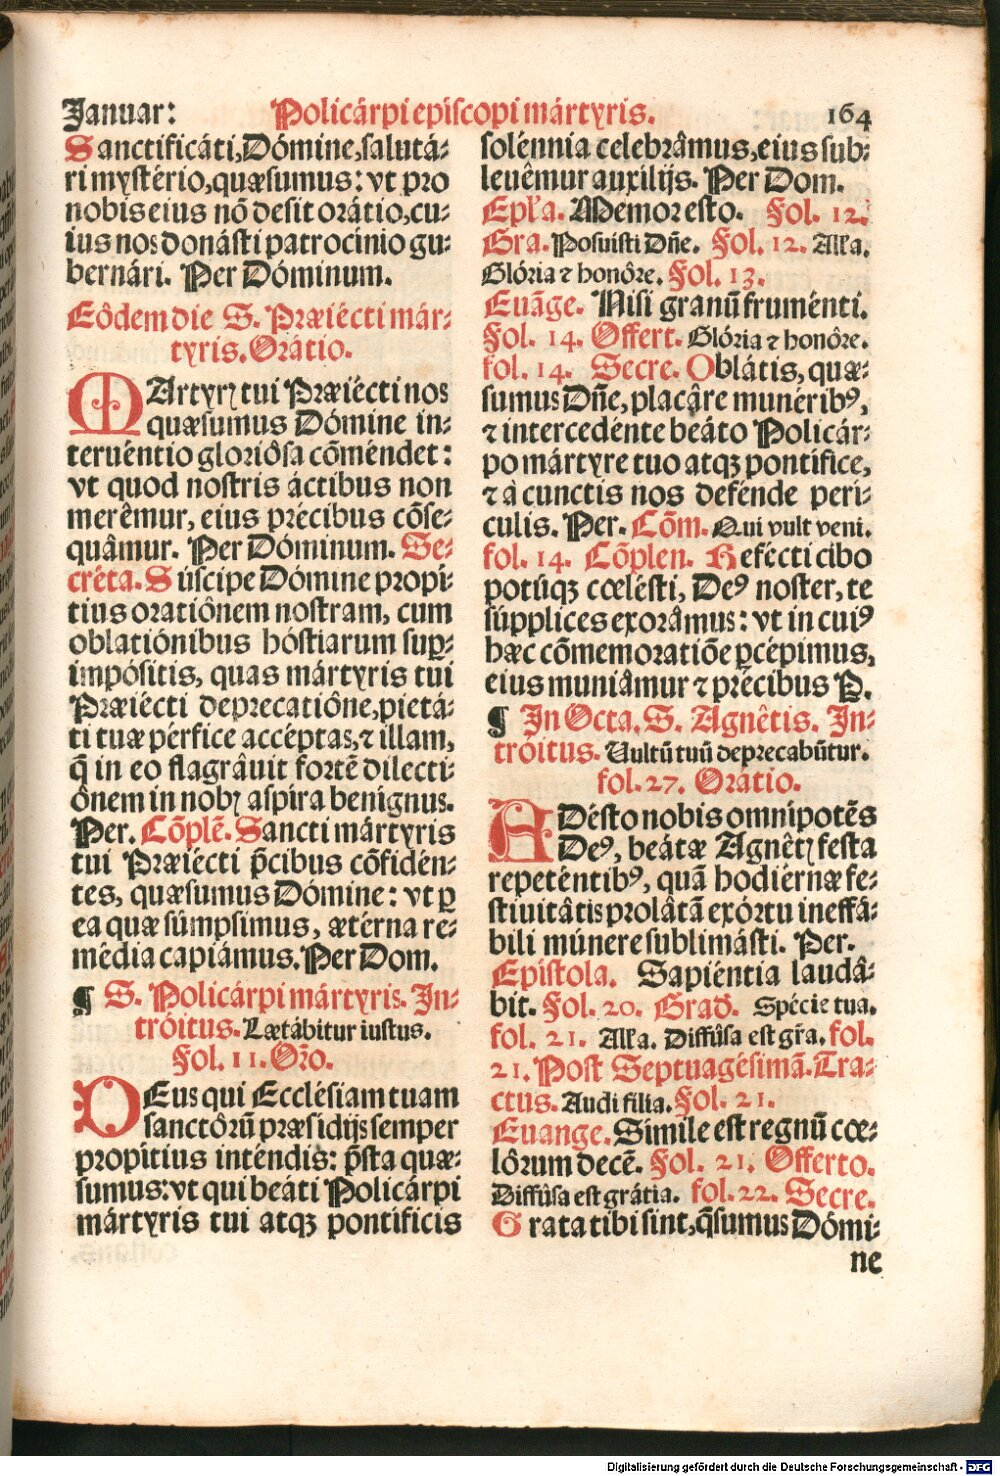 Januar: Policárpi episcopi mártyris. 164
Sanctificáti, Dómine, salutá-
ri mystério, quæsumus: vt pro
nobis eius nõ desit orátio, cu-
ius nos donásti patrocínio gu-
bernári. Per Dóminum.
Eôdem die S. Præiécti már-
tyris. Orátio.
MArtyrꝭ tui Præiécti nos
quæsumus Dómine in-
teruéntio gloriôsa cõméndet:
vt quod nostris áctibus non
merêmur, eius précibus cõse-
quâmur. Per Dóminum. Se-
créta. Súscipe Dómine propí-
tius oratiônem nostram, cum
oblatiónibus hóstiarum sup̱-
impósitis, quas mártyris tui
Præiécti deprecatiône, pietá-
ti tuæ pérfice accéptas, ⁊ illam,
q̃ in eo flagrâuit fortẽ dilecti-
ônem in nobꝭ aspira benignus.
Per. Cõplẽ. Sancti mártyris
tui Præiécti p̃cibus cõfidén-
tes, quæsumus Dómine: vt ꝑ
ea quæ súmpsimus, ætérna re-
média capiámus. Per Dom.
¶ S. Policárpi mártyris. In-
tróitus. Lætábitur iustus.
Fol. 11. Orõ.
DEus qui Ecclésiam tuam
sanctôrũ præsídijs semper
propítius inténdis: p̃sta quæ-
sumus: vt qui beáti Policárpi
mártyris tui atqꝫ pontíficis
solénnia celebrâmus, eius sub-
leuêmur auxílijs. Per Dom.
Epľa. Memor esto. Fol. 12.
Gra. Posuisti Dñe. Fol. 12. Alľa.
Glória ⁊ honôre. Fol. 13.
Euãge. Nisi granũ fruménti.
Fol. 14. Offert. Glória ⁊ honôre.
fol. 14. Secre. Oblátis, quæ-
sumus Dñe, placâre munérib⁹,
⁊ intercedénte beáto Policár-
po mártyre tuo atqꝫ pontífice,
⁊ à cunctis nos defénde perí-
culis. Per. Cõm. Qui vult veni.
fol. 14. Cõplen. Refécti cibo
potúqꝫ cœlésti, De⁹ noster, te
súpplices exorâmus: vt in cui⁹
hæc cõmemoratiõe ꝑcépimus,
eius muniâmur ⁊ précibus P.
¶ In Octa. S. Agnêtis. In-
tróitus. Vultũ tuũ deprecabũtur.
fol. 27. Orátio.
ADésto nobis omnípotẽs
De⁹, beátæ Agnêtꝭ festa
repeténtib⁹, quã hodiérnæ fe-
stiuitâtis prolâtã exórtu ineffá-
bili múnere sublimásti. Per.
Epístola. Sapiéntia laudâ-
bit. Fol. 20. Grad. Spécie tua.
fol. 21. Alľa. Diffûsa est gr̃a. fol.
21. Post Septuagésimã. Tra-
ctus. Audi filia. Fol. 21.
Euange. Símile est regnũ cœ-
lôrum decẽ. Fol. 21. Offerto.
Diffûsa est grátia. fol. 22. Secre.
Grata tibi sint, q̃sumus Dómi-
ne
Digitalisierung gefördert durch die Deutsche Forschungsgemeinschaft - DFG